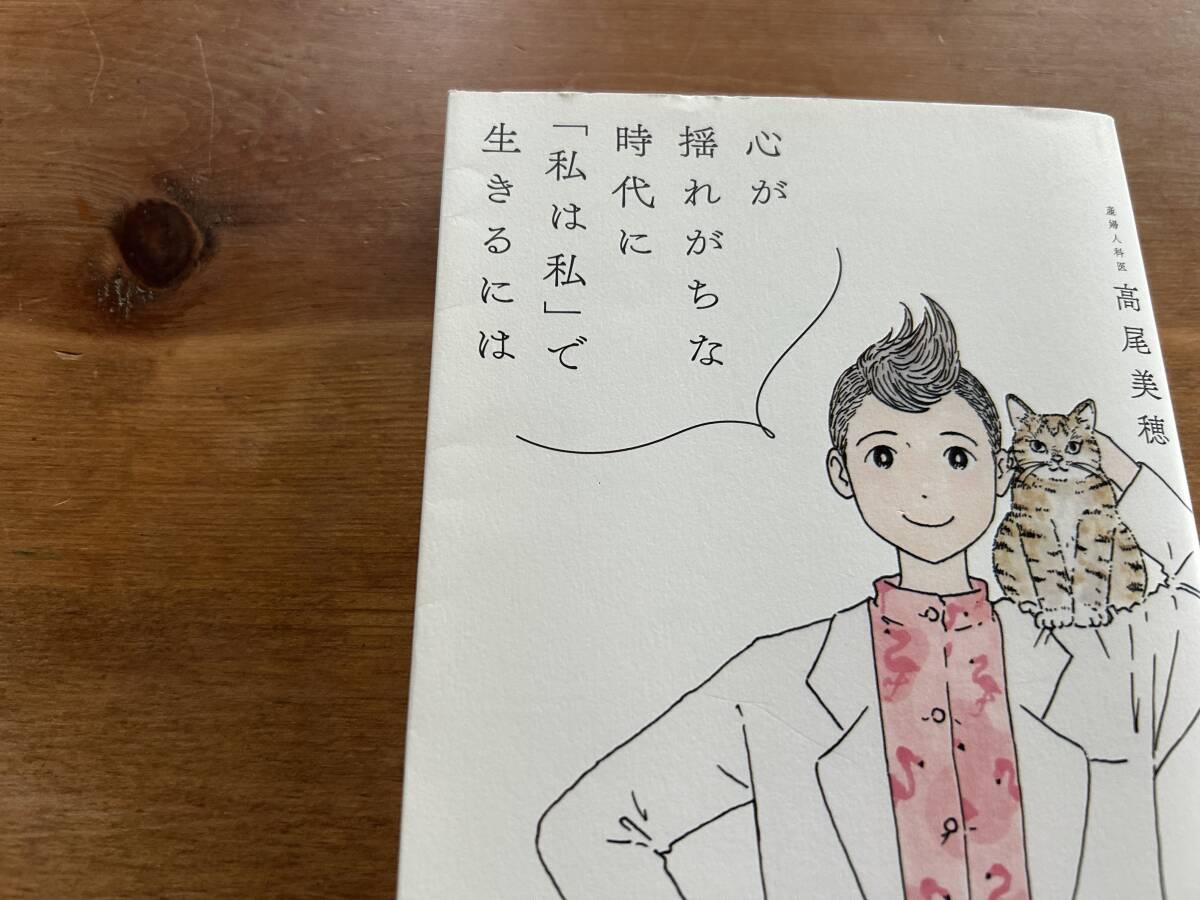 心が
揺れがちな
時代に
「私は私」で
生きるには
産婦人科医 高尾美穂